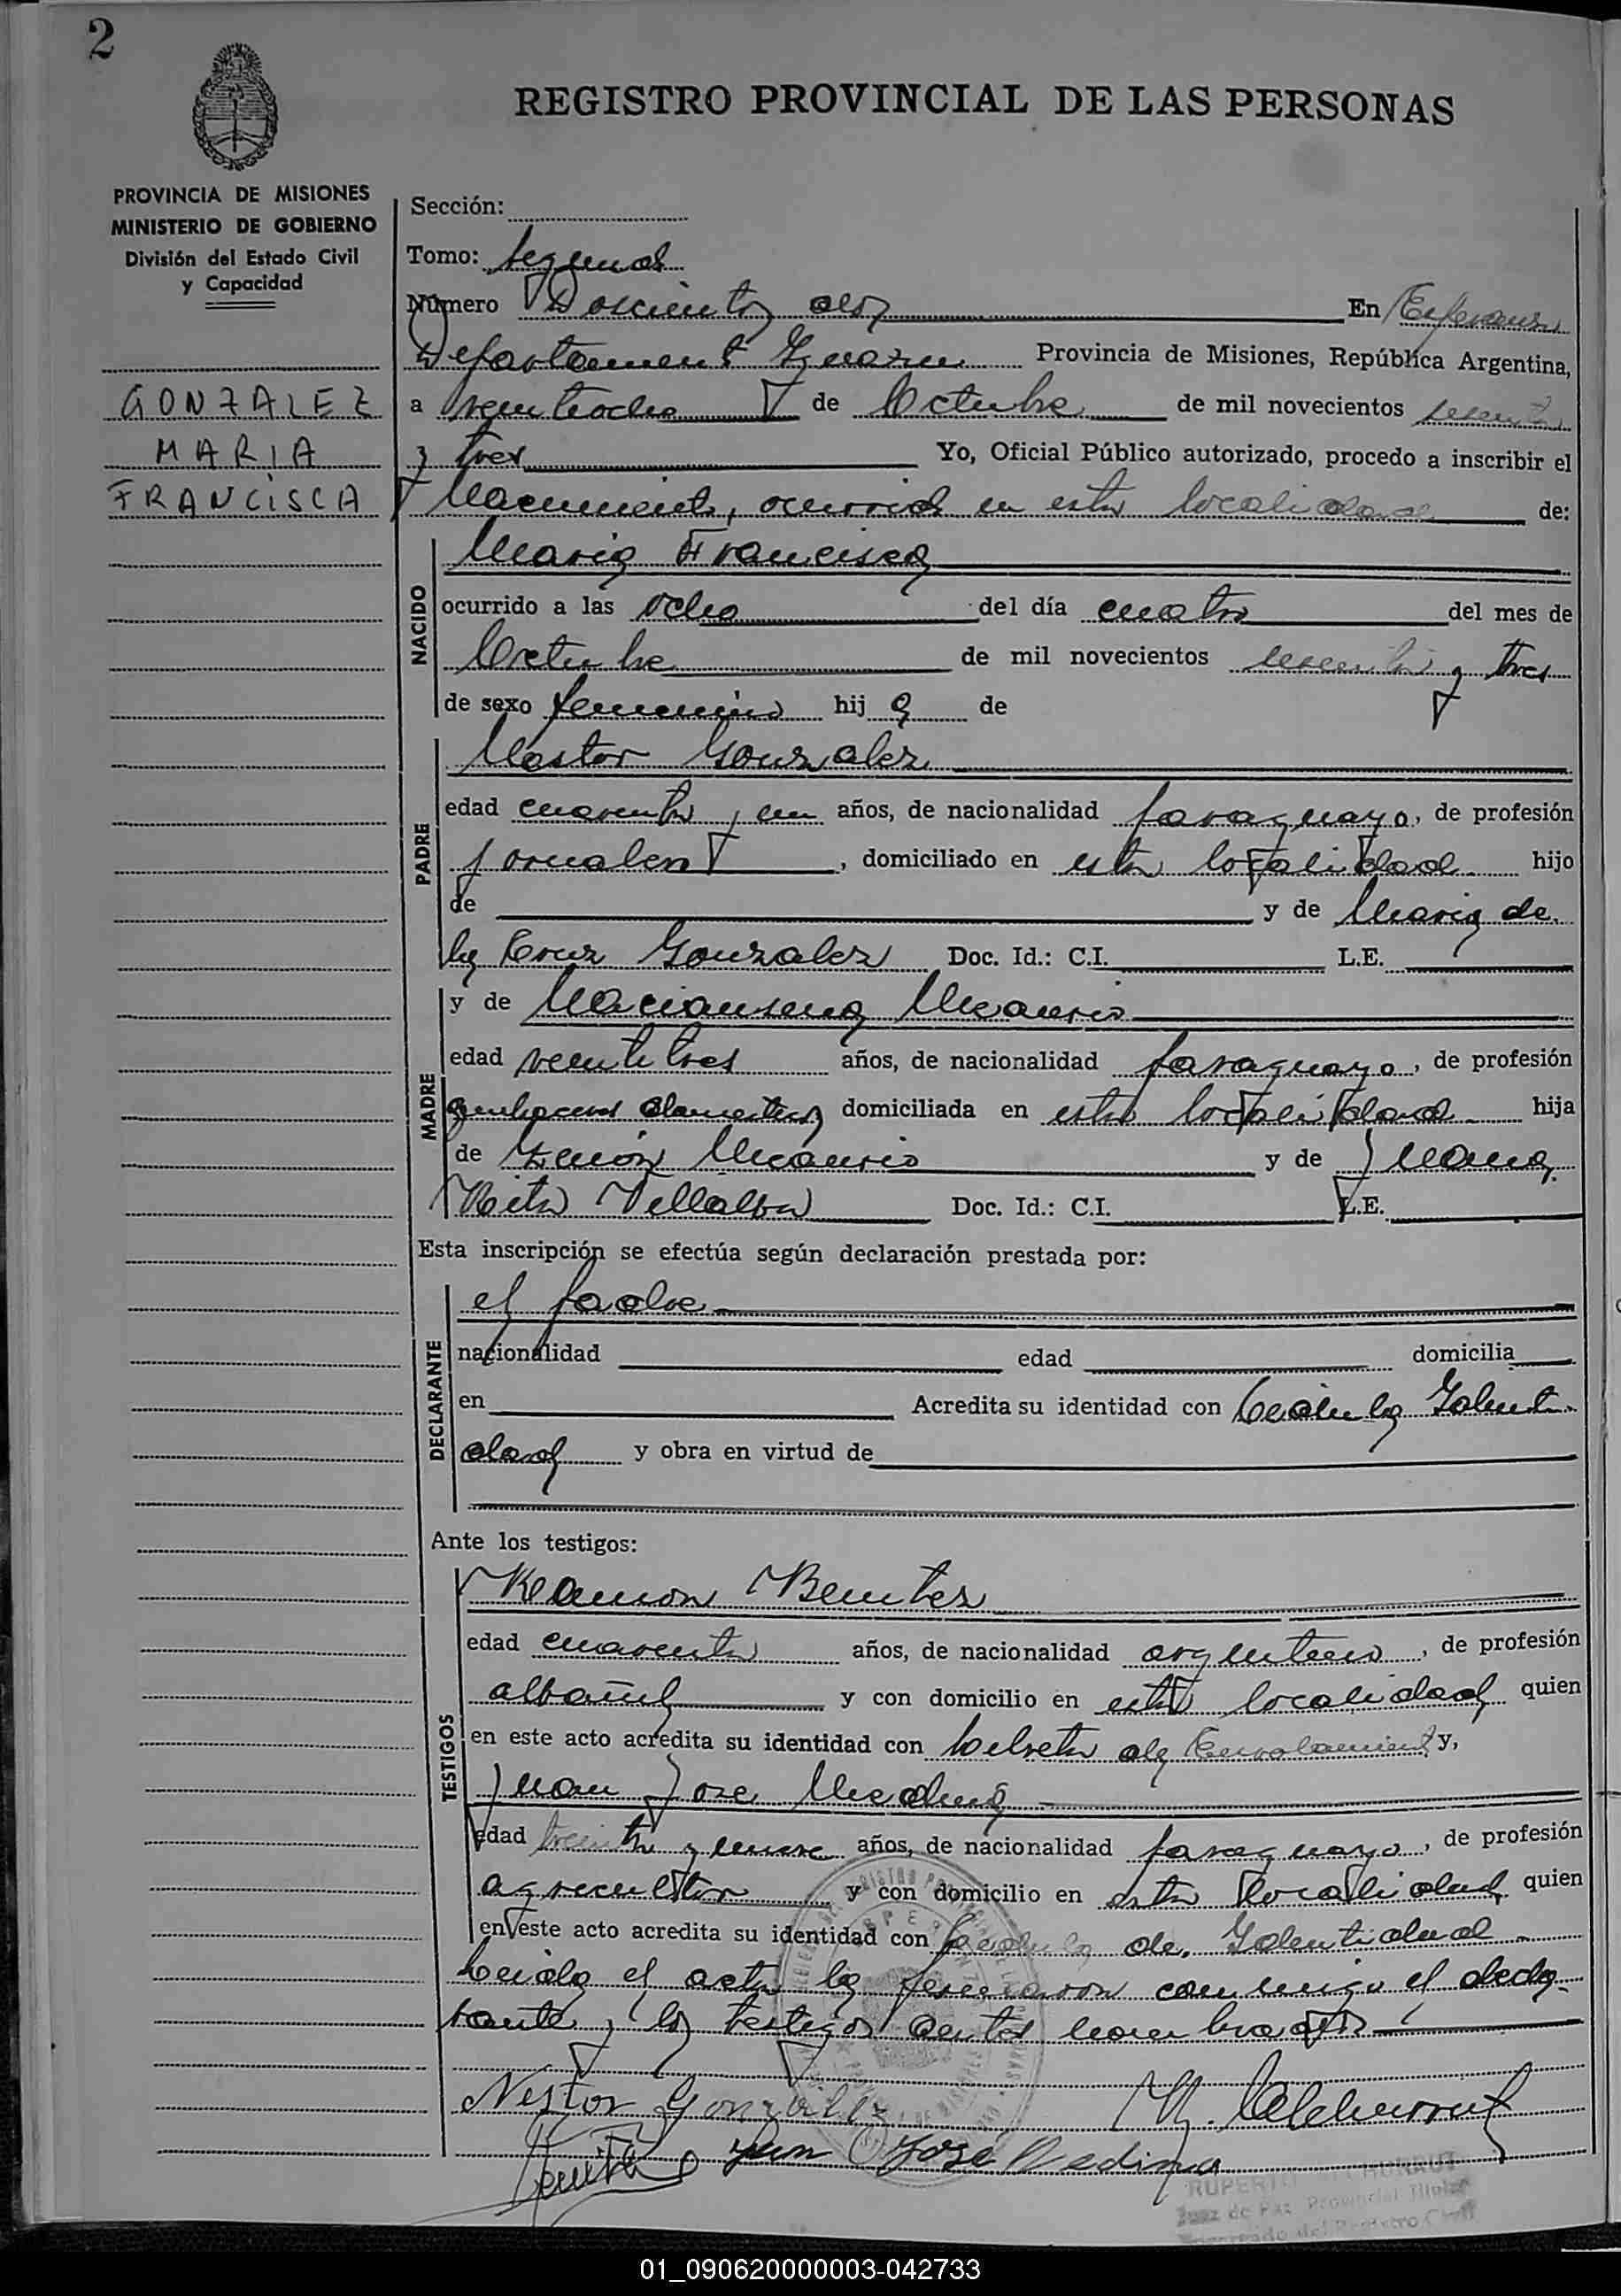 2
REGISTRO PROVINCIAL DE LAS PERSONAS
PROVINCIA DE MISIONES
MINISTERIO DE GOBIERNO
División del Estado Civil
y Capacidad
GONZALEZ
MARIA
FRANCISCA
Sección:
Tomo: Segundo
Número Doscientos dos En
Departamento Provincia de Misiones, República Argentina,
a veintiocho de Octubre de mil novecientos sesenta
y tres Yo, Oficial Público autorizado, procedo a inscribir el
Nacimiento, ocurrido en esta localidad de:
NACIDO
Maria Francisca
ocurrido a las ocho del día cuatro del mes de
Octubre de mil novecientos sesenta y tres
de sexo femenino hija de
PADRE
Nestor Gonzalez
edad cuarenta y un años, de nacionalidad paraguayo, de profesión
jornalero, domiciliado en esta localidad hijo
de y de Maria de
la Cruz Gonzalez Doc. Id.: C.I. L.E.
MADRE
y de
edad veintitres años, de nacionalidad paraguaya, de profesión
quehaceres domesticos domiciliada en esta localidad hija
de Zenón y de Juana
Rita Villalba Doc. Id.: C.I. L.E.
Esta inscripción se efectúa según declaración prestada por:
DECLARANTE
el padre
nacionalidad edad domicilia
en Acredita su identidad con Cédula Identi-
dad y obra en virtud de
Ante los testigos:
TESTIGOS
Ramon Benitez
edad cuarenta años, de nacionalidad argentino, de profesión
albañil y con domicilio en esta localidad quien
en este acto acredita su identidad con Libreta de Enrolamiento y,
Juan Jose Medina
edad treinta y nueve años, de nacionalidad paraguayo, de profesión
agricultor y con domicilio en esta localidad quien
en este acto acredita su identidad con Cedula de Identidad
Leida el acta la firmaron conmigo el decla-
rante y los testigos antes nombrados
Nestor Gonzalez
Juan José Medina
RUPERTO
Juez de Paz Provincial Titular
Encargado del Registro Civil
01_090620000003-042733